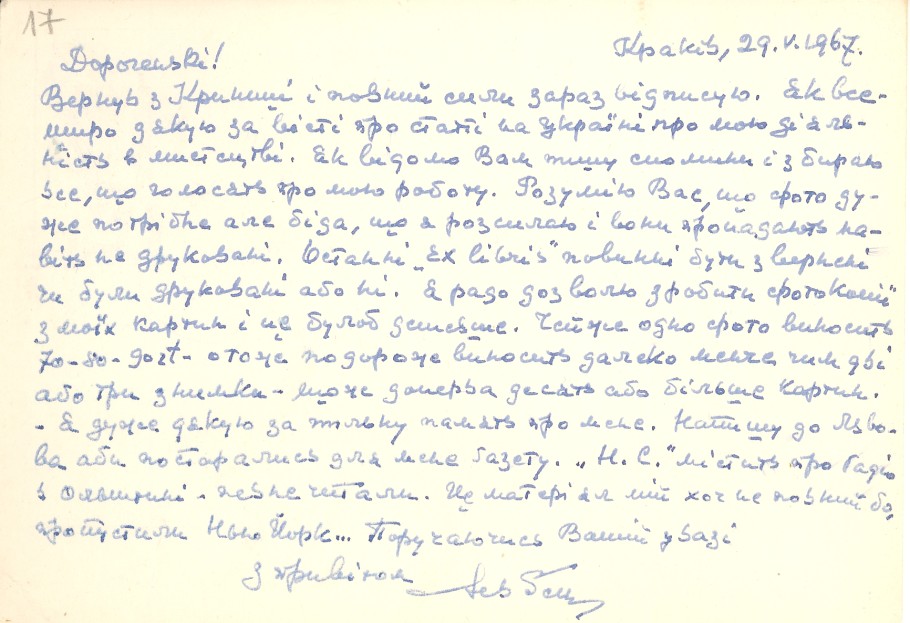 17
Краків, 29.V.1967.
Дорогенькі!
Вернув з Криниці і повний сили зараз відписую. Як все-
щиро дякую за вісті про статті на Україні про мою діяль-
ність в мистецтві. Як відомо Вам пишу спомини і збираю
все, що голосять про мою роботу. Розумію Вас, що фото ду-
же потрібне але біда, що я розсилаю і вони пропадають на-
віть не друковані. Останні „Ex libris" повинні бути звернені
чи були друковані або ні. Я радо дозволю зробити фотокопії
з моїх картин і це булоб дешевше. Чейже одно фото виносить
70-80-90zł- отож подорож виносить далеко менче чим дві
або три знимки - може доперва десять або більше картин.
- Я дуже дякую за пильну память про мене. Напишу до Льво-
ва аби постарались для мене газету. „Н. С." містить про Радіо
в Ольштині - певне читали. Це матеріял мій хоч не повний бо,
пропустили Нью Йорк... Поручаючись Вашій увазі
з привітом Лев Ґец